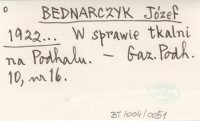 BEDNARCZYK Józef
1922... W sprawie tkalni
na Podhalu. – Gaz. Podh.
10, nr 16.
BT/1004/0051